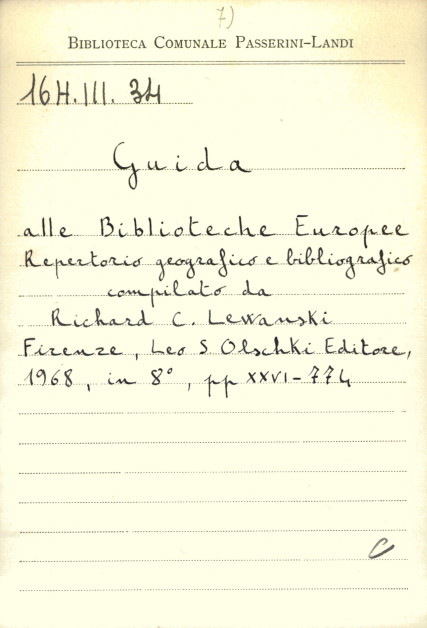 7)
BIBLIOTECA COMUNALE PASSERINI-LANDI
16H.III. 34
Guida
alle Biblioteche Europee
Repertorio geografico e bibliografico
compilato da
Richard C. Lewanski
Firenze, Leo S. Olschki Editore,
1968, in 8°, pp XXVI-774
C